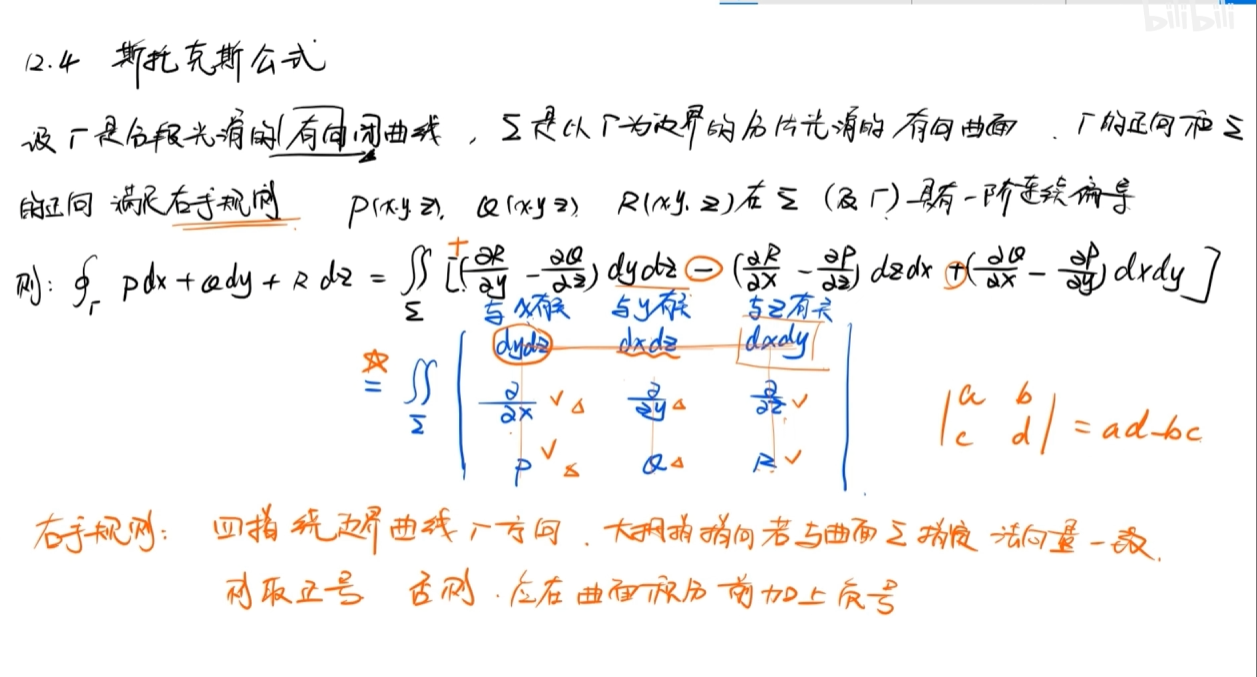 bilibili
12.4 斯托克斯公式
设Γ是分段光滑的有向闭曲线，Σ是以Γ为边界的分片光滑的有向曲面．Γ的正向和Σ
的正向满足右手规则 P(x.y.z), Q(x.y z) R(x,y,z)在Σ(及Γ)具有一阶连续偏导
则: ∮_Γ Pdx+Qdy+Rdz = ∬_Σ [+(∂R/∂y - ∂Q/∂z) dydz - (∂R/∂x - ∂P/∂z) dzdx + (∂Q/∂x - ∂P/∂y) dxdy]
与x有关 与y有关 与z有关
☆ = ∬_Σ | dydz dxdz dxdy |
| ∂/∂x ∨ △ ∂/∂y △ ∂/∂z ∨ |
| P ∨ △ Q △ R ∨ |
| a b |
| c d | = ad-bc
右手规则: 四指绕边界曲线Γ方向．大拇指指向若与曲面Σ指定法向量一致.
则取正号 否则．应在曲面积分前加上负号